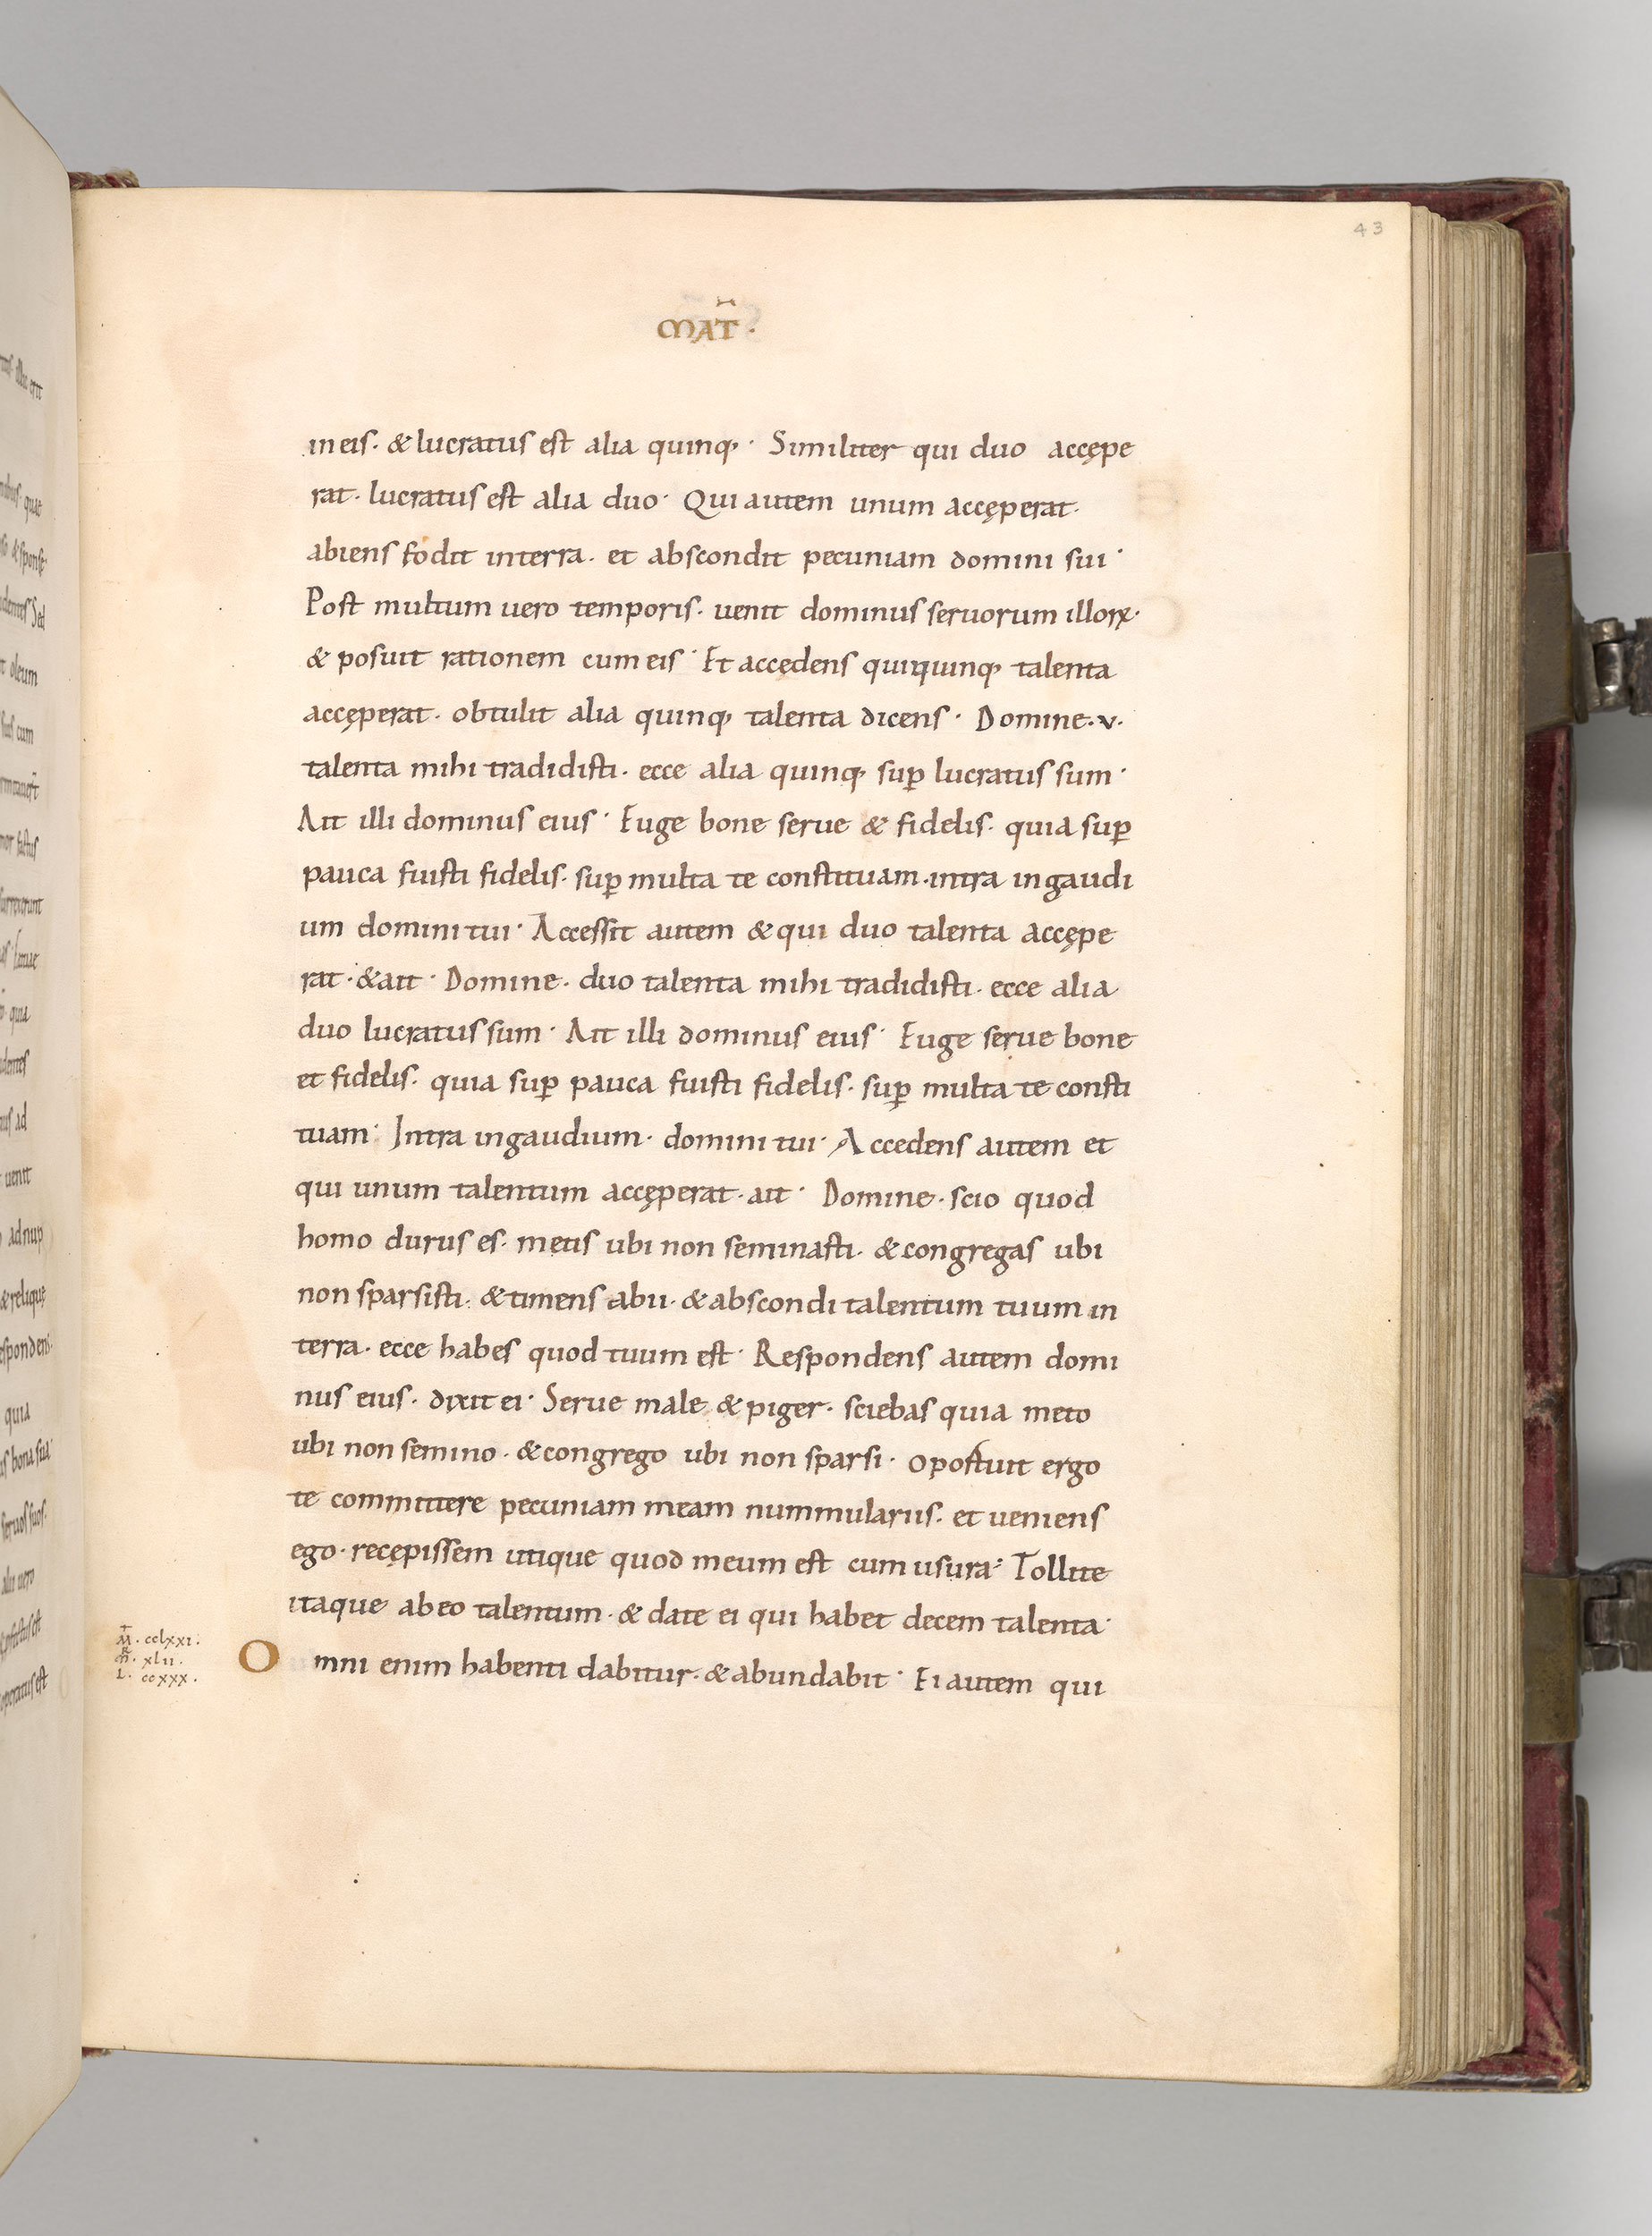 43
MAT̃·
in eis· & lucratus est alia quinq;· Similiter qui duo accępe
rat· lucratus est alia duo· Qui autem unum accęperat·
abiens fodit in terra· et abscondit pecuniam domini sui·
Post multum uero temporis· uenit dominus seruorum illoꝝ·
& posuit rationem cum eis· Et accedens qui quinq; talenta
accęperat· obtulit alia quinq; talenta dicens· Domine·v·
talenta mihi tradidisti· ecce alia quinq; suꝑ lucratus sum·
Ait illi dominus eius· Euge bone serue & fidelis· quia suꝑ
pauca fuisti fidelis· suꝑ multa te constituam· intra in gaudi
um domini tui· Accessit autem & qui duo talenta accępe
rat· & ait· Domine· duo talenta mihi tradidisti· ecce alia
duo lucratus sum· Ait illi dominus eius· Euge serue bone
et fidelis· quia suꝑ pauca fuisti fidelis· suꝑ multa te consti
tuam· Intra in gaudium· domini tui· Accedens autem et
qui unum talentum accęperat· ait· Domine· scio quod
homo durus es· metis ubi non seminasti· & congregas ubi
non sparsisti· & timens abii· & abscondi talentum tuum in
terra· ecce habes quod tuum est· Respondens autem domi
nus eius· dixit ei· Serue male & piger· sciebas quia meto
ubi non semino· & congrego ubi non sparsi· oportuit ergo
te committere pecuniam meam nummulariis· et ueniens
ego· recępissem utique quod meum est cum usura· Tollite
itaque ab eo talentum· & date ei qui habet decem talenta·
M̄· cclxxi·
R̄· xlii·
L· ccxxx·
Omni enim habenti dabitur· & abundabit· Ei autem qui